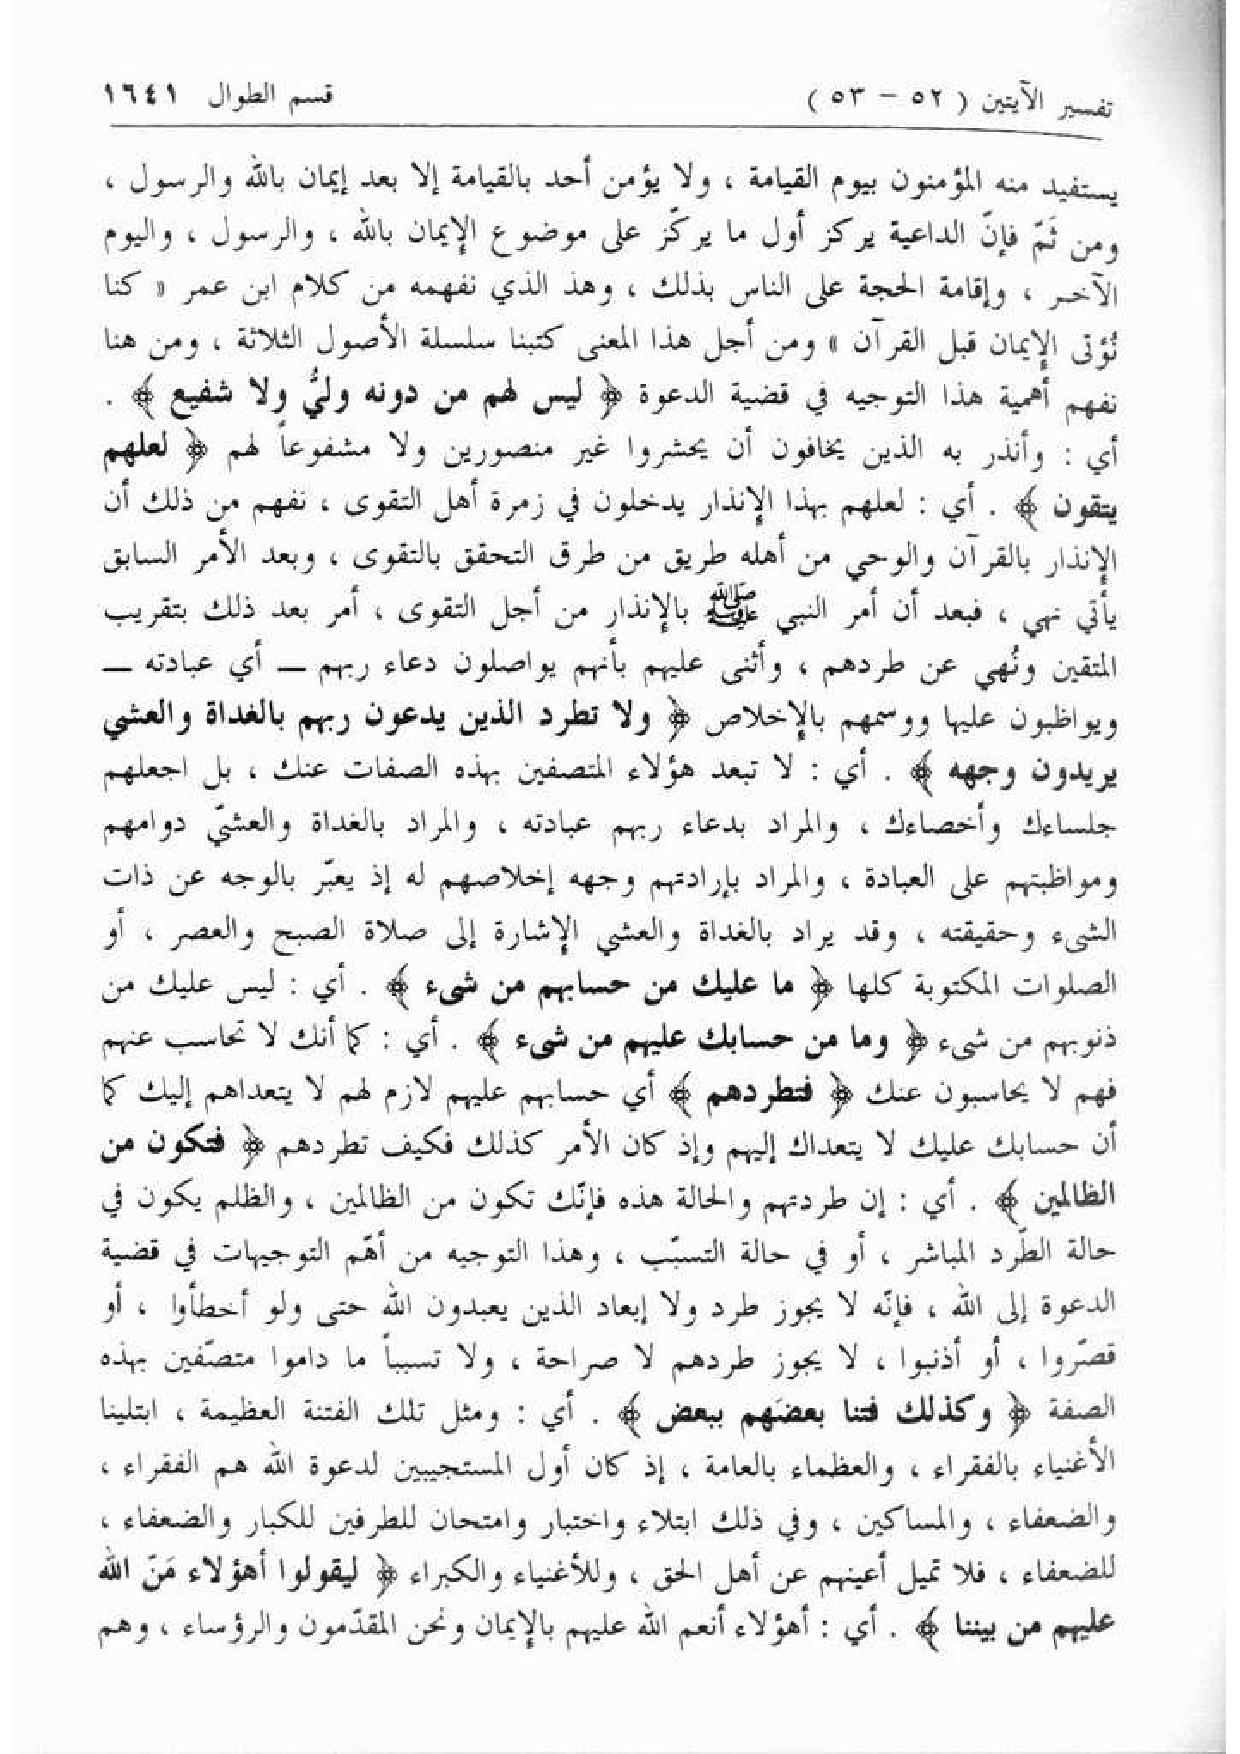 تفسير الآيتين ( ٥٢ – ٥٣ ) قسم الطوال ١٦٤١
يستفيد منه المؤمنون بيوم القيامة ، ولا يؤمن أحد بالقيامة إلا بعد إيمان بالله والرسول ،
ومن ثَمّ فإنّ الداعية يركز أول ما يركّز على موضوع الإيمان بالله ، والرسول ، واليوم
الآخر ، وإقامة الحجة على الناس بذلك ، وهذ الذي نفهمه من كلام ابن عمر « كنا
نُؤتى الإيمان قبل القرآن » ومن أجل هذا المعنى كتبنا سلسلة الأصول الثلاثة ، ومن هنا
نفهم أهمية هذا التوجيه في قضية الدعوة ﴿ ليس لهم من دونه وليٌّ ولا شفيع ﴾ .
أي : وأنذر به الذين يخافون أن يحشروا غير منصورين ولا مشفوعاً لهم ﴿ لعلهم
يتقون ﴾ . أي : لعلهم بهذا الإنذار يدخلون في زمرة أهل التقوى ، نفهم من ذلك أن
الإنذار بالقرآن والوحي من أهله طريق من طرق التحقق بالتقوى ، وبعد الأمر السابق
يأتي نهي ، فبعد أن أمر النبي ﷺ بالإنذار من أجل التقوى ، أمر بعد ذلك بتقريب
المتقين ونُهي عن طردهم ، وأثنى عليهم بأنهم يواصلون دعاء ربهم — أي عبادته —
ويواظبون عليها ووسمهم بالإخلاص ﴿ ولا تطرد الذين يدعون ربهم بالغداة والعشي
يريدون وجهه ﴾ . أي : لا تبعد هؤلاء المتصفين بهذه الصفات عنك ، بل اجعلهم
جلساءك وأخصاءك ، والمراد بدعاء ربهم عبادته ، والمراد بالغداة والعشيّ دوامهم
ومواظبتهم على العبادة ، والمراد بإرادتهم وجهه إخلاصهم له إذ يعبّر بالوجه عن ذات
الشىء وحقيقته ، وقد يراد بالغداة والعشي الإشارة إلى صلاة الصبح والعصر ، أو
الصلوات المكتوبة كلها ﴿ ما عليك من حسابهم من شىء ﴾ . أي : ليس عليك من
ذنوبهم من شىء ﴿ وما من حسابك عليهم من شىء ﴾ . أي : كما أنك لا تحاسب عنهم
فهم لا يحاسبون عنك ﴿ فتطردهم ﴾ أي حسابهم عليهم لازم لهم لا يتعداهم إليك كما
أن حسابك عليك لا يتعداك إليهم وإذ كان الأمر كذلك فكيف تطردهم ﴿ فتكون من
الظالمين ﴾ . أي : إن طردتهم والحالة هذه فإنّك تكون من الظالمين ، والظلم يكون في
حالة الطّرد المباشر ، أو في حالة التسبّب ، وهذا التوجيه من أهّم التوجيهات في قضية
الدعوة إلى الله ، فإنّه لا يجوز طرد ولا إبعاد الذين يعبدون الله حتى ولو أخطأوا ، أو
قصّروا ، أو أذنبوا ، لا يجوز طردهم لا صراحة ، ولا تسبباً ما داموا متصّفين بهذه
الصفة ﴿ وكذلك فتنا بعضَهم ببعض ﴾ . أي : ومثل تلك الفتنة العظيمة ، ابتلينا
الأغنياء بالفقراء ، والعظماء بالعامة ، إذ كان أول المستجيبين لدعوة الله هم الفقراء ،
والضعفاء ، والمساكين ، وفي ذلك ابتلاء واختبار وامتحان للطرفين للكبار والضعفاء ،
للضعفاء ، فلا تميل أعينهم عن أهل الحق ، وللأغنياء والكبراء ﴿ ليقولوا أهؤلاء مَنّ الله
عليهم من بيننا ﴾ . أي : أهؤلاء أنعم الله عليهم بالإيمان ونحن المقدّمون والرؤساء ، وهم